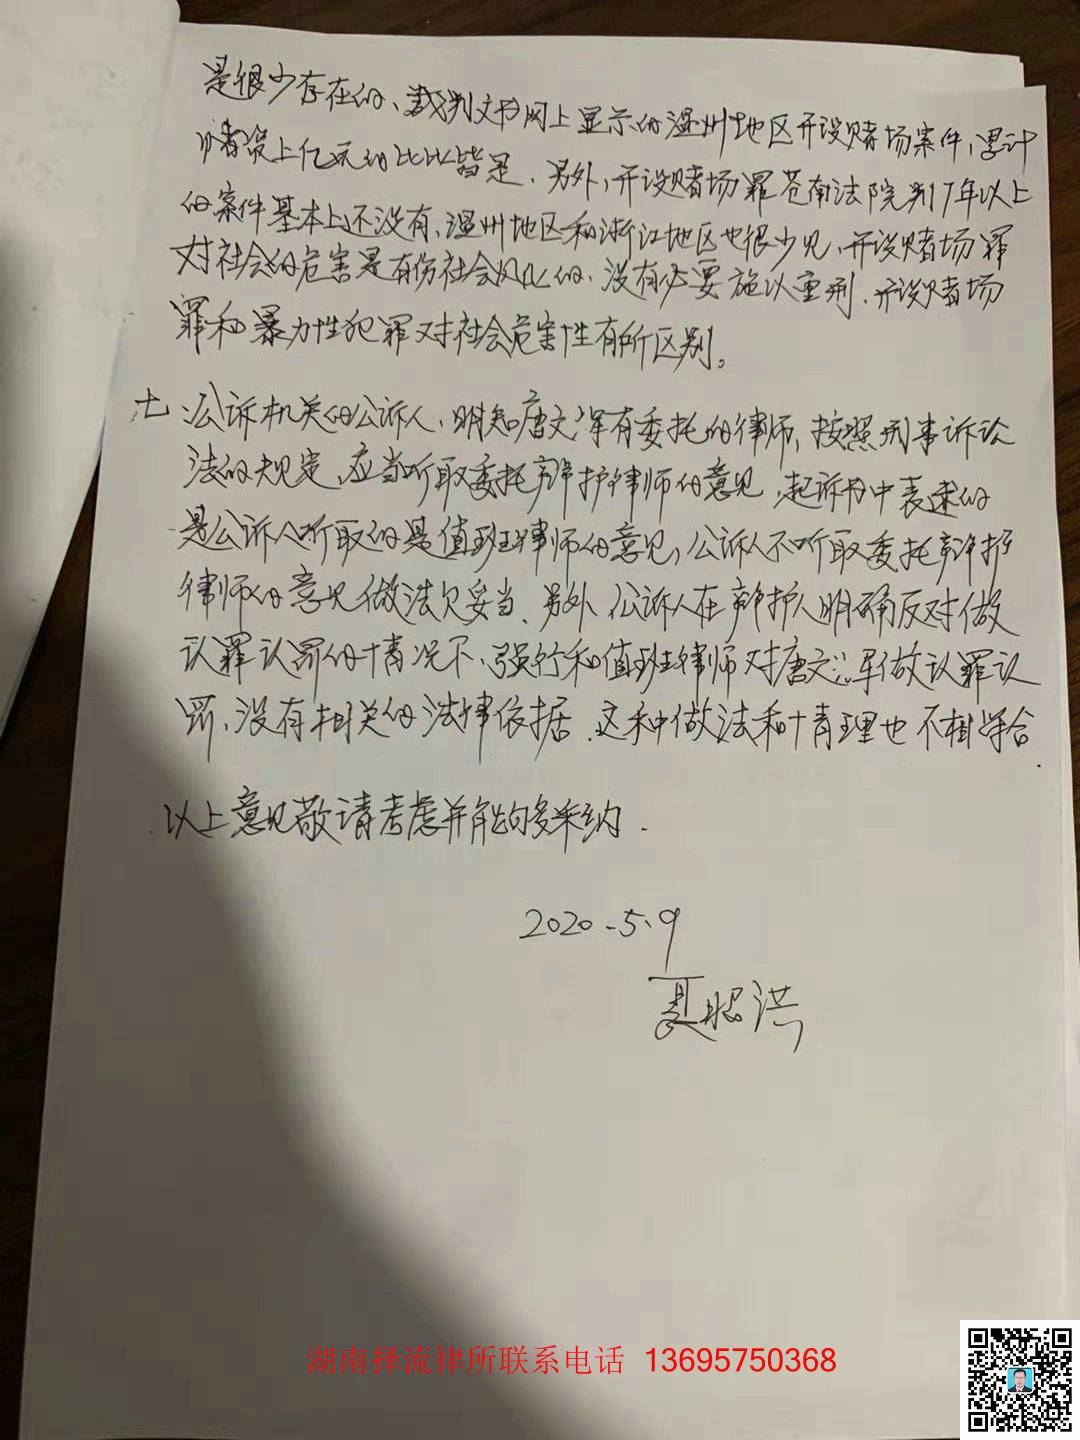 是很少存在的、裁判文书网上显示的温州地区开设赌场案件，累计
赌资上亿元的比比皆是、另外，开设赌场罪苍南法院判7年以上
的案件基本上还没有、温州地区和浙江地区也很少见、开设赌场罪
对社会的危害是有伤社会风化的、没有必要施以重刑、开设赌场
罪和暴力性犯罪对社会危害性有所区别。
七、公诉机关的公诉人、明知唐文军有委托的律师，按照刑事诉讼
法的规定，应当听取委托辩护律师的意见，起诉书中表述的
是公诉人听取的是值班律师的意见，公诉人不听取委托辩护
律师的意见做法欠妥当、另外，公诉人在辩护人明确反对做
认罪认罚的情况下、强行和值班律师对唐文军做认罪认
罚、没有相关的法律依据、这种做法和情理也不相符合.
以上意见敬请考虑并能够多采纳.
2020.5.9
夏昭洪
湖南择流律所联系电话 13695750368